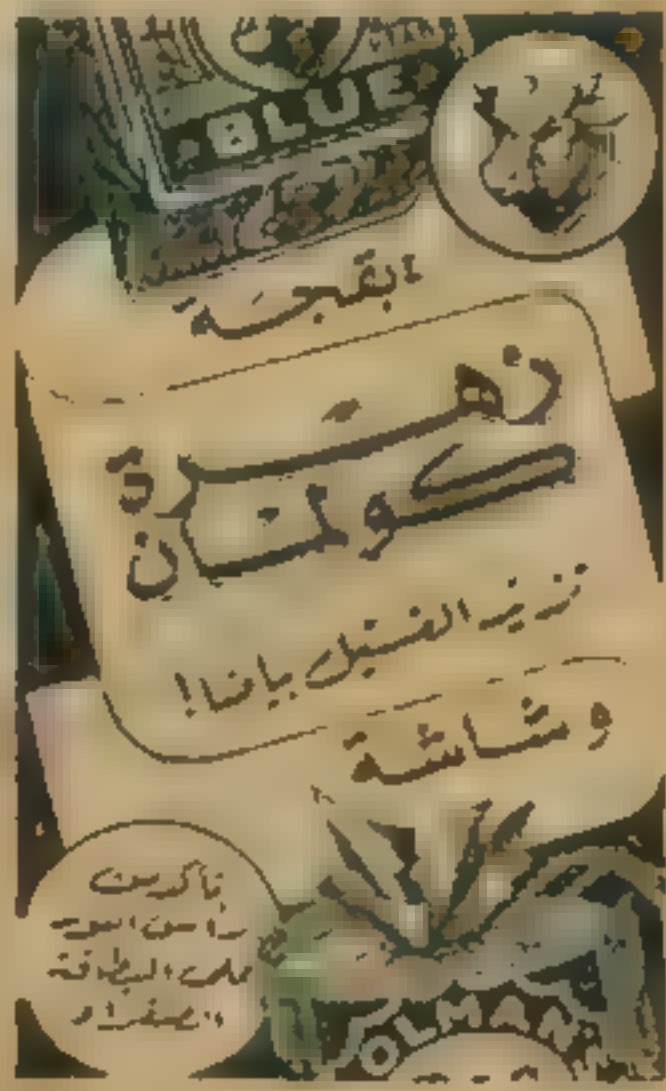 BLUE
بقجة
زهرة
كولمان
تزيد الغسيل بياضا!
وشاشة
تأكدين
رأس الثور
على البطاقة
الصفراء
OLMAN